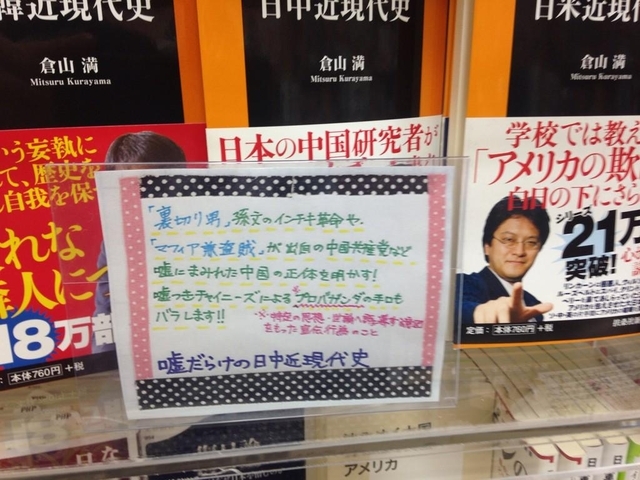 韓近現代史
倉山 満
Mitsuru Kurayama
日中近現代史
倉山 満
Mitsuru Kurayama
日米近現代
倉山 満
Mitsuru Kurayama
いう妄執に
て、歴史を
し自我を保
れな
隣人に
18万部
本体760円 +税
日本の中国研究者が
「裏切り男」孫文のインチキ革命や、
「マフィア兼盗賊」が出自の中国共産党など
嘘にまみれた中国の正体を明かす!
嘘つきチャイニーズによる※プロパガンダの手口も
バラします!!
※特定の思想・世論へ誘導する意図
をもった宣伝行為のこと
嘘だらけの日中近現代史
学校では教え
「アメリカの欺
白日の下にさら
シリーズ
21万
突破!
定価:本体760円+税
扶桑社新
アメリカ